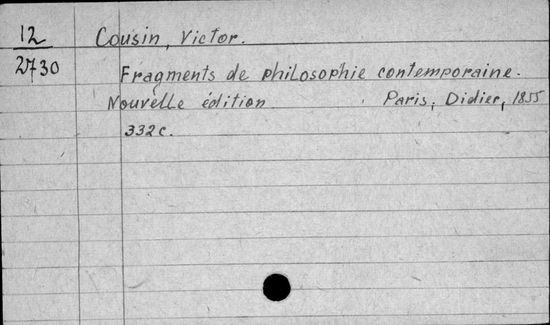 12
2730
Cousin, Victor.
Fragments de philosophie contemporaine.
Nouvelle édition Paris, Didier, 1855
332 c.